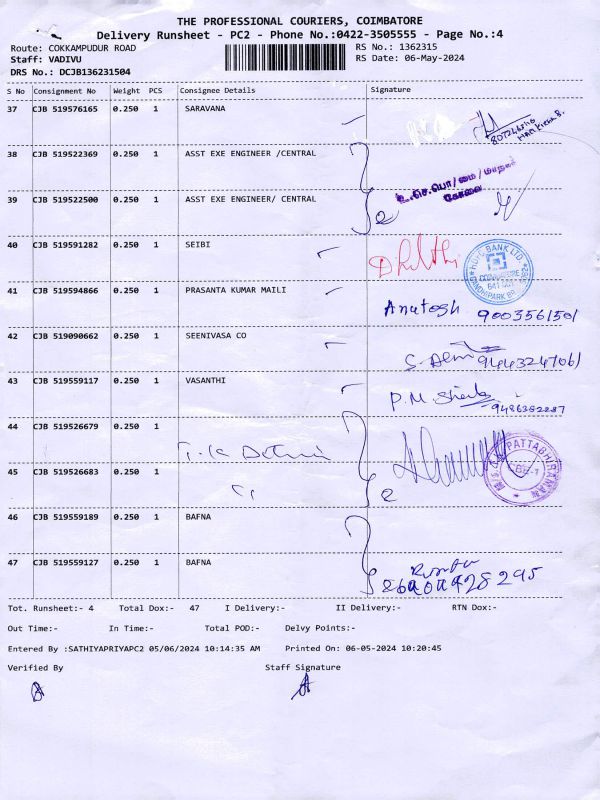 THE PROFESSIONAL COURIERS, COIMBATORE
Delivery Runsheet - PC2 - Phone No.:0422-3505555 - Page No.:4
Route: COKKAMPUDUR ROAD RS No.: 1362315
Staff: VADIVU RS Date: 06-May-2024
DRS No.: DCJB136231504
S No Consignment No Weight PCS Consignee Details Signature
37 CJB 519576165 0.250 1 SARAVANA
38 CJB 519522369 0.250 1 ASST EXE ENGINEER /CENTRAL
உ.செ.பொ/மை/மாநகர்
கோவை
39 CJB 519522500 0.250 1 ASST EXE ENGINEER/ CENTRAL
2
40 CJB 519591282 0.250 1 SEIBI
BANK LTD.
COIMBATORE
41 CJB 519594866 0.250 1 PRASANTA KUMAR MAILI
Anutosh 9003561501
42 CJB 519090662 0.250 1 SEENIVASA CO
9444324706/
43 CJB 519559117 0.250 1 VASANTHI
P.M. 9486382287
44 CJB 519526679 0.250 1
PATTABHIRAMAN
CBE-1
45 CJB 519526683 0.250 1
2
46 CJB 519559189 0.250 1 BAFNA
47 CJB 519559127 0.250 1 BAFNA
Tot. Runsheet:- 4 Total Dox:- 47 I Delivery:- II Delivery:- RTN Dox:-
Out Time:- In Time:- Total POD:- Delvy Points:-
Entered By :SATHIYAPRIYAPC2 05/06/2024 10:14:35 AM Printed On: 06-05-2024 10:20:45
Verified By Staff Signature